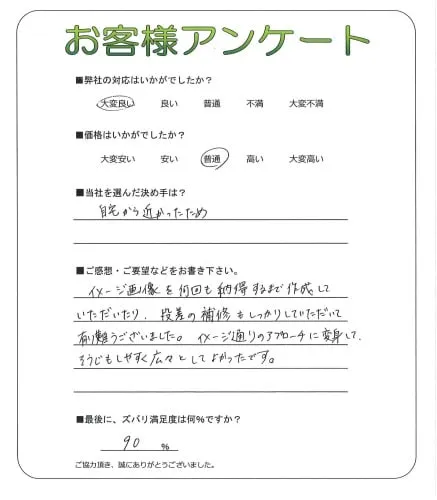 お客様アンケート
■弊社の対応はいかがでしたか？
大変良い 良い 普通 不満 大変不満
■価格はいかがでしたか？
大変安い 安い 普通 高い 大変高い
■当社を選んだ決め手は？
自宅から近かったため
■ご感想・ご要望などをお書き下さい。
イメージ画像を何回も納得するまで作成して
いただいたり、段差の補修もしっかりしていただいて
有難うございました。イメージ通りのアプローチに変身して、
そうじもしやすく広々としてよかったです。
■最後に、ズバリ満足度は何％ですか？
90 %
ご協力頂き、誠にありがとうございました。